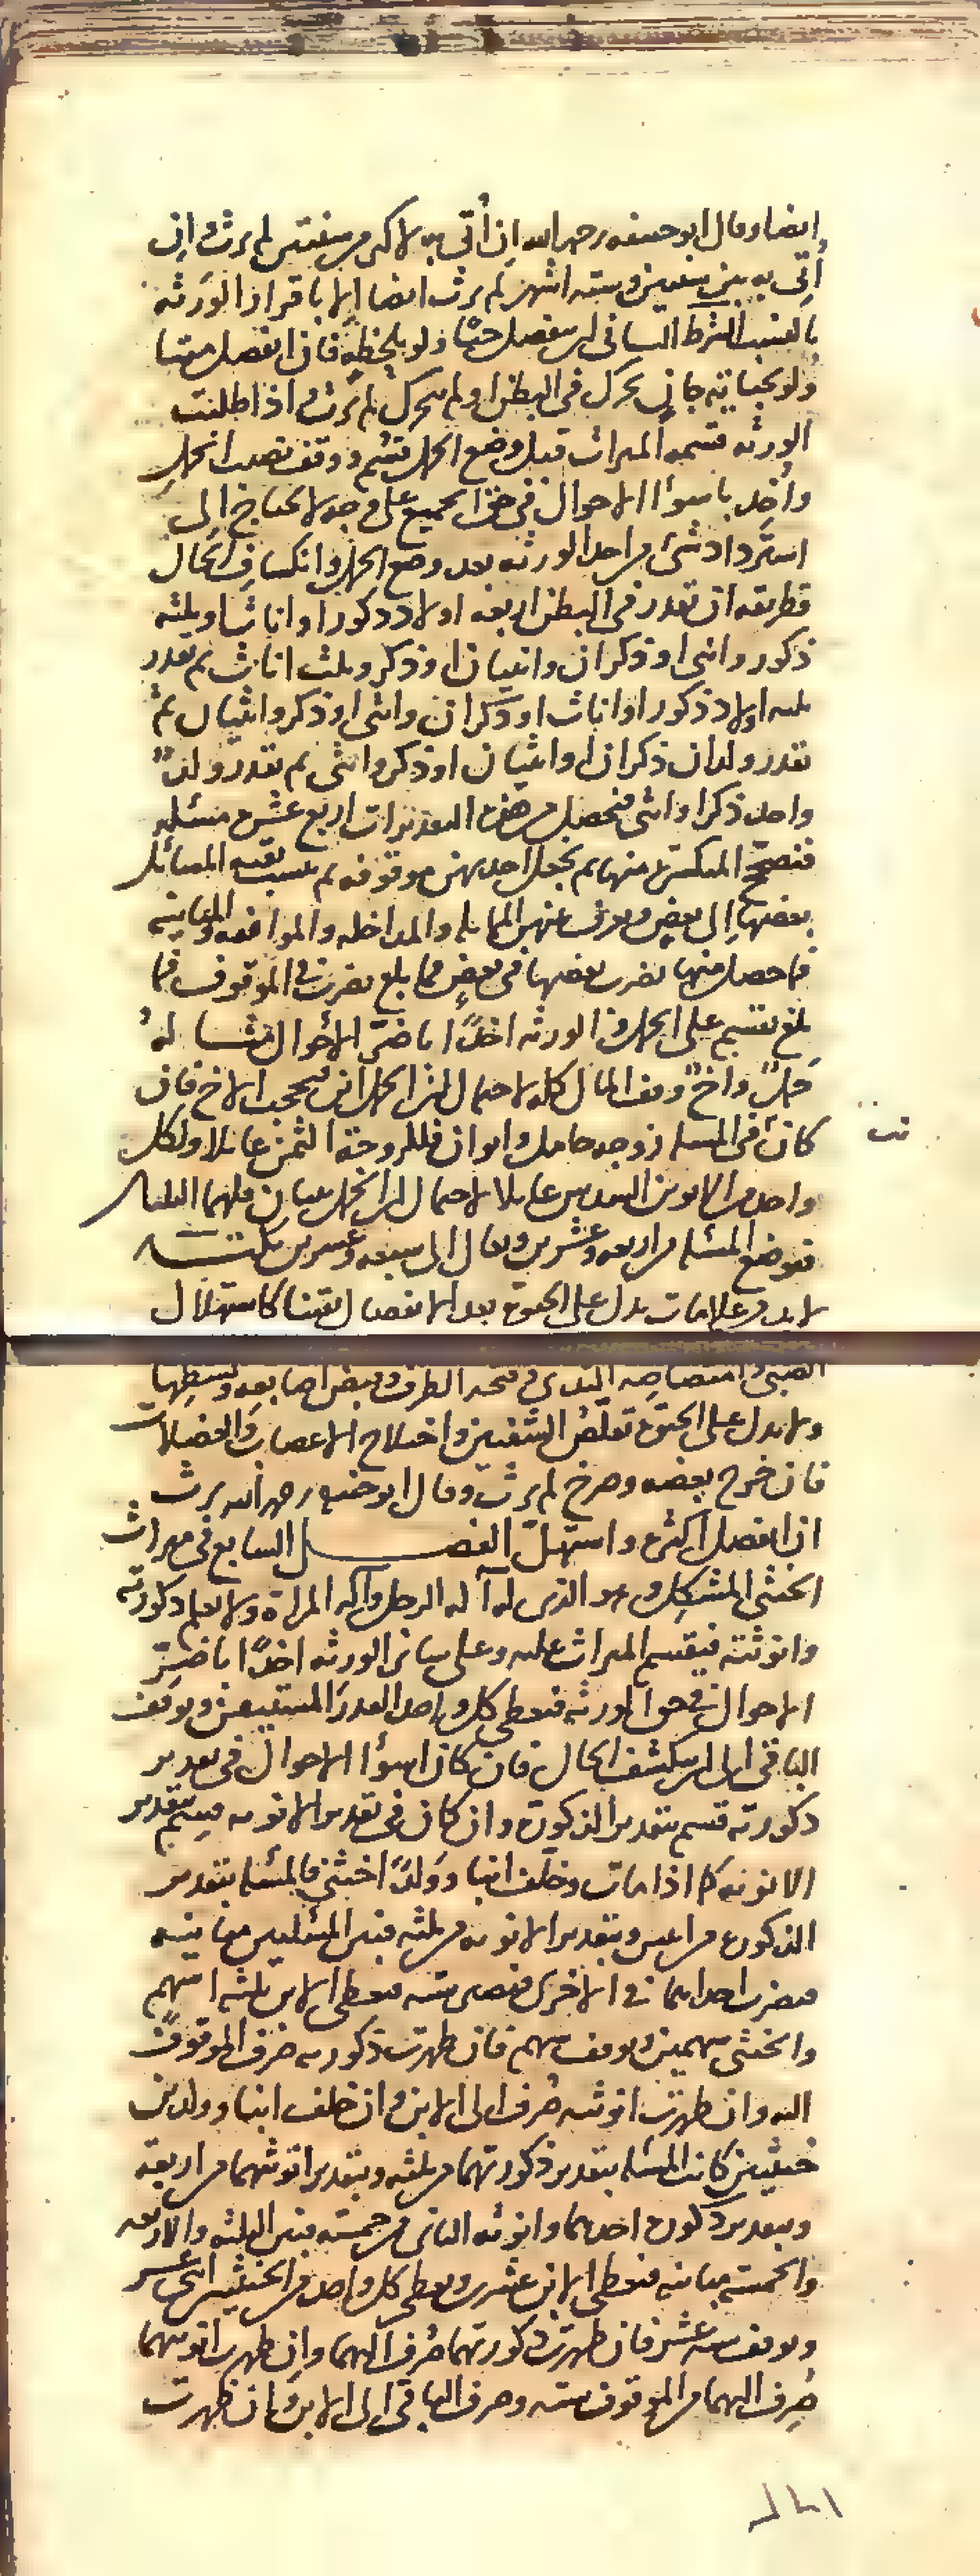 ايضا وقال ابو حنيفه رحمه الله ان أتى به لاكثر من سنتين لم يرث وان
أتى به بين سنتين وسته اشهر لم يرث ايضا الا باقرار الورثه
بالنسب الشرط الثاني ان ينفصل حيّا ولو بلحظه فان انفصل ميتا
ولو بجنايه جان تحرك في البطن او لم يتحرك لم يرث واذا طلبت
الورثه قسمه الميراث قبل وضع الحمل قسم ووقف نصيب الحمل
وأخذ باسوأ الاحوال في حق الجميع على وجه لا يحتاج الى
استرداد شئ من احد الورثه بعد وضع الحمل وانكشاف الحال
فطريقه ان تقدر في البطن اربعه اولاد ذكورا او اناثا او ثلثه
ذكور وانثى او ذكران وانثيان او ذكر وثلث اناث ثم تقدر
ثلثه اولاد ذكور او اناث او ذكران وانثى او ذكر وانثيان ثم
تقدر ولدان ذكران او انثيان او ذكر وانثى ثم تقدر ولدٌ
واحد ذكر او انثى فيحصل من هذه التقديرات اربع عشره مسئله
فتصحح المنكسره منها ثم تجعل احديهن موقوفه ثم تنسب بقيه المسائل
بعضها الى بعض ويعرف عنهن المماثله والمداخله والموافقه والمباينه
فما حصل منها تضرب بعضها في بعض فما بلغ تضرب في الموقوف فما
بلغ يقسم على الحمل والورثه اخذًا باضرّ الاحوال مثاله
حملٌ واخٌ وقف المال كله لاحتمال ان الحمل ابن فيحجب الاخ فان
كانت في المسئله زوجه حامل وابوان فللزوجه الثمن عائلا ولكل
واحد من الابوين السدس عائلا لاحتمال ان الحمل بنتان فلهما الثلثان
فتوضع المسئله من اربعه وعشرين وتعال الى سبعه وعشرين
لا بد من علامات تدل على الحيوة بعد الانفصال يقينا كاستهلال
الصبى وامتصاصه الثدي وفتحه الطرف وقبض اصابعه وبسطها
ولا يدل على الحيوة تقلّص الشفتين واختلاج الاعصاب والعضلات
فان خرج بعضه وصرخ لم يرث وقال ابو حنيفه رحمه الله يرث
اذا انفصل اكثره واستهلّ الفصل السابع في ميراث
الخنثى المشكل وهو الذي له آله الرجل وآله المرأة ولا يعلم ذكورته
وانوثته فيقسم الميراث عليه وعلى سائر الورثه اخذًا باضرّ
الاحوال في حق الورثه فيعطى كل واحد القدر المستيقن ويوقف
الباقي الى ان ينكشف الحال فان كان اسوأ الاحوال في تقدير
ذكورته قسم بتقدير الذكورة وان كان في تقدير الانوثه قسم بتقدير
الانوثه كما اذا مات وخلف ابنا وولدًا خنثى فالمسئله بتقدير
الذكوره من اثنين وبتقدير الانوثه من ثلثه فبين المسئلتين مباينه
فيضرب احداهما في الاخرى فتصير سته فيعطى الابن ثلثه اسهم
والخنثى سهمين ويوقف سهم فان ظهرت ذكورته صرف الموقوف
اليه وان ظهرت انوثته صُرف الى الابن وان خلف ابنا وولدين
خنثيين كانت المسئله بتقدير ذكورتهما من ثلثه وبتقدير انوثتهما من اربعه
وبتقدير ذكورة احدهما وانوثه الثاني من خمسته فبين الثلثه والاربعه
والخمسه مباينه فيعطى الابن عشرين ويعطى كل واحد من الخنثيين اثنى عشر
ويوقف سته عشر فان ظهرت ذكورتهما صُرف اليهما وان ظهرت انوثتهما
صُرف اليهما من الموقوف سته وصرف الباقي الى الابن وان ظهرت